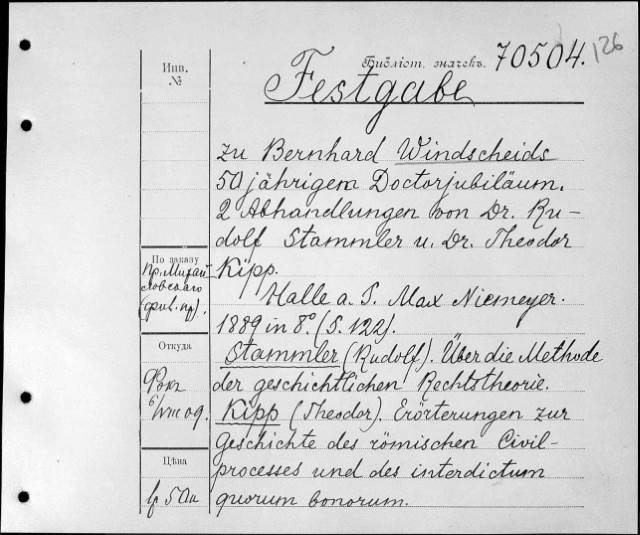 Инв.
№
Библіот. значекъ. 70504. 126
Festgabe
zu Bernhard Windscheids
50 jährigem Doctorjubiläum.
2 Abhandlungen von Dr. Ru-
dolf Stammler u. Dr. Theodor
Kipp.
Halle a. S. Max Niemeyer.
1889 in 8°. (S. 122).
Stammler (Rudolf). Über die Methode
der geschichtlichen Rechtstheorie.
Kipp (Theodor). Erörterungen zur
Geschichte des römischen Civil-
processes und des interdictum
quorum bonorum.
По заказу
пр. Михай-
ловскаго
Откуда
Фокъ
6/VIII 09.
Цѣна